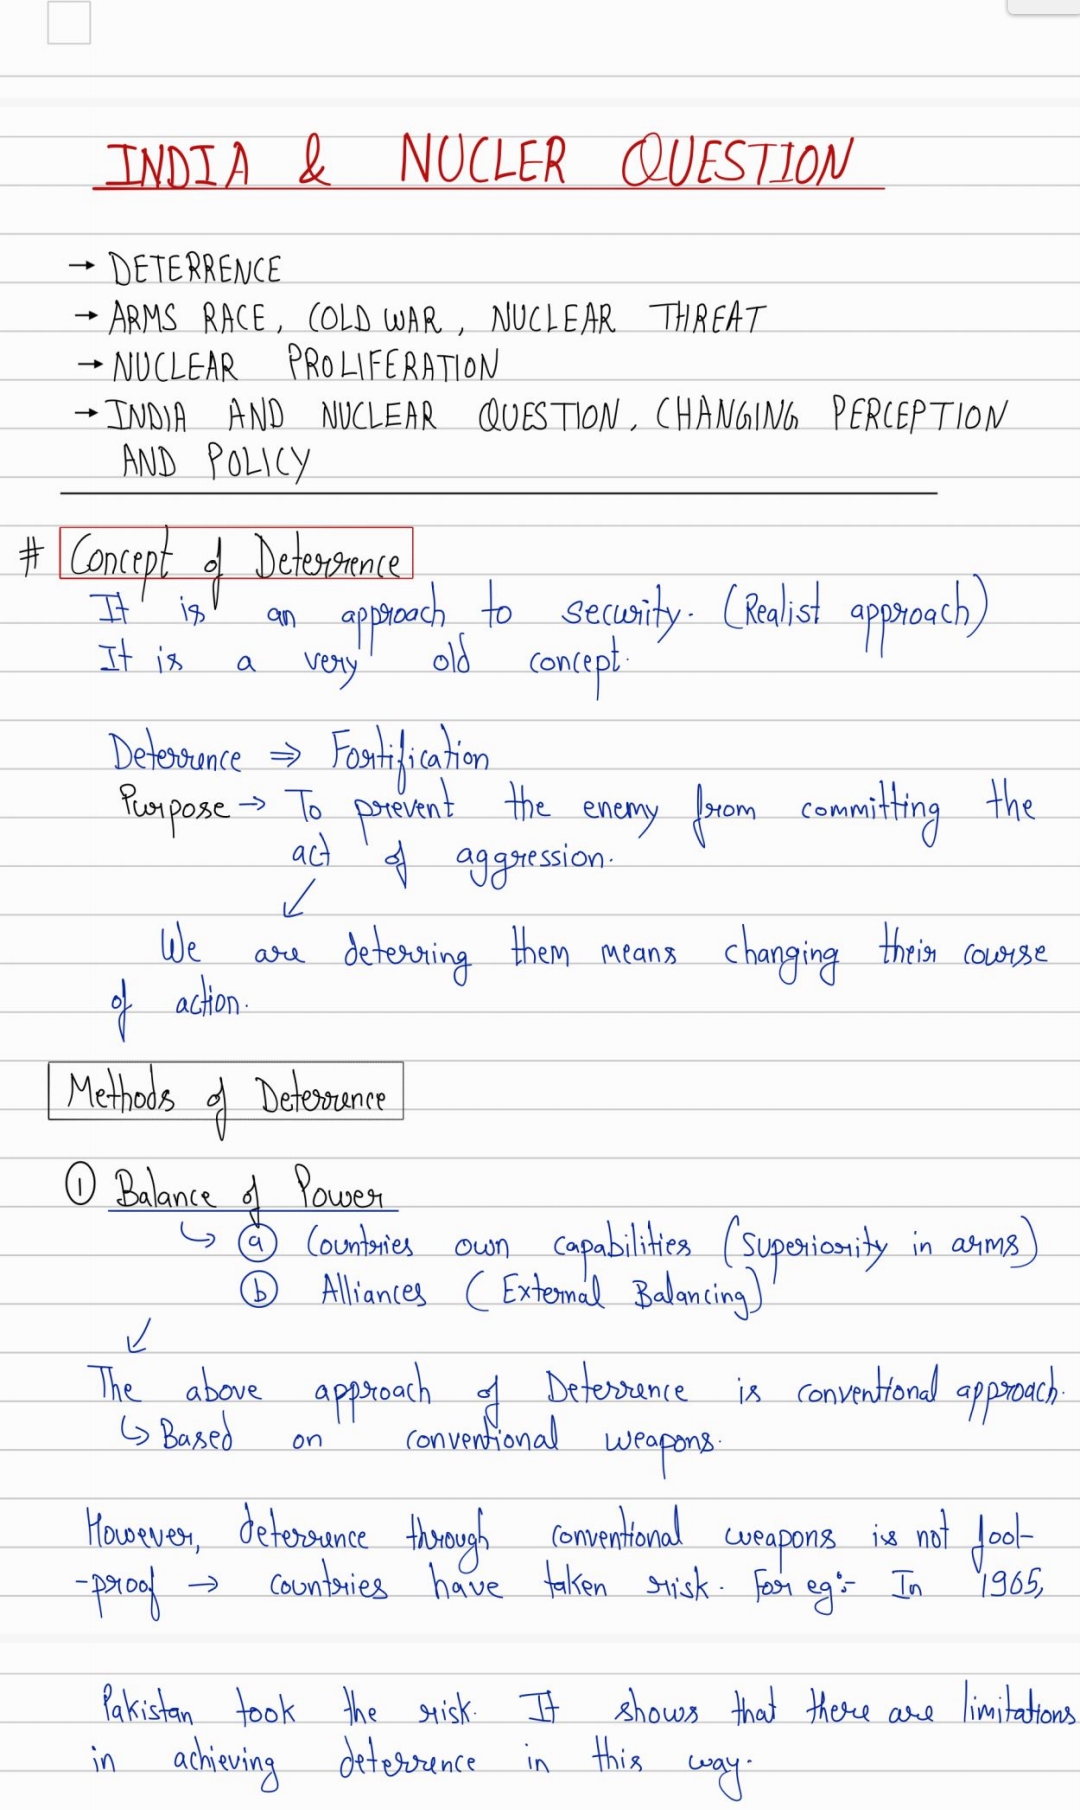 INDIA & NUCLER QUESTION
→ DETERRENCE
→ ARMS RACE, COLD WAR, NUCLEAR THREAT
→ NUCLEAR PROLIFERATION
→ INDIA AND NUCLEAR QUESTION, CHANGING PERCEPTION
AND POLICY
# Concept of Deterrence
It is an approach to security. (Realist approach)
It is a very old concept.
Deterrence ⇒ Fortification
Purpose → To prevent the enemy from committing the
act of aggression.
↙
We are deterring them means changing their course
of action.
Methods of Deterrence
① Balance of Power
↳ ⓐ Countries own capabilities (superiority in arms)
ⓑ Alliances (External Balancing)
↙
The above approach of Deterrence is conventional approach.
↳ Based on conventional weapons.
However, deterrence through conventional weapons is not fool-
-proof → countries have taken risk. For eg:- In 1965,
Pakistan took the risk. It shows that there are limitations
in achieving deterrence in this way.